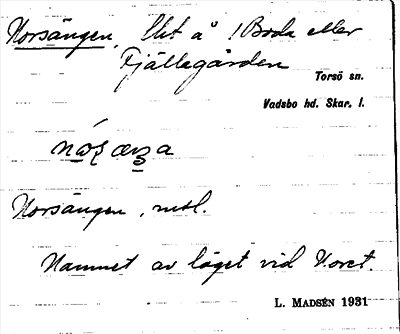 Norsängen, Utt å 1 Boda eller
Fjällagården
Torsö sn.
Vadsbo hd. Skar. l.
Norsängen, mul.
Namnet av läget vid Noret.
L. MADSÉN 1931